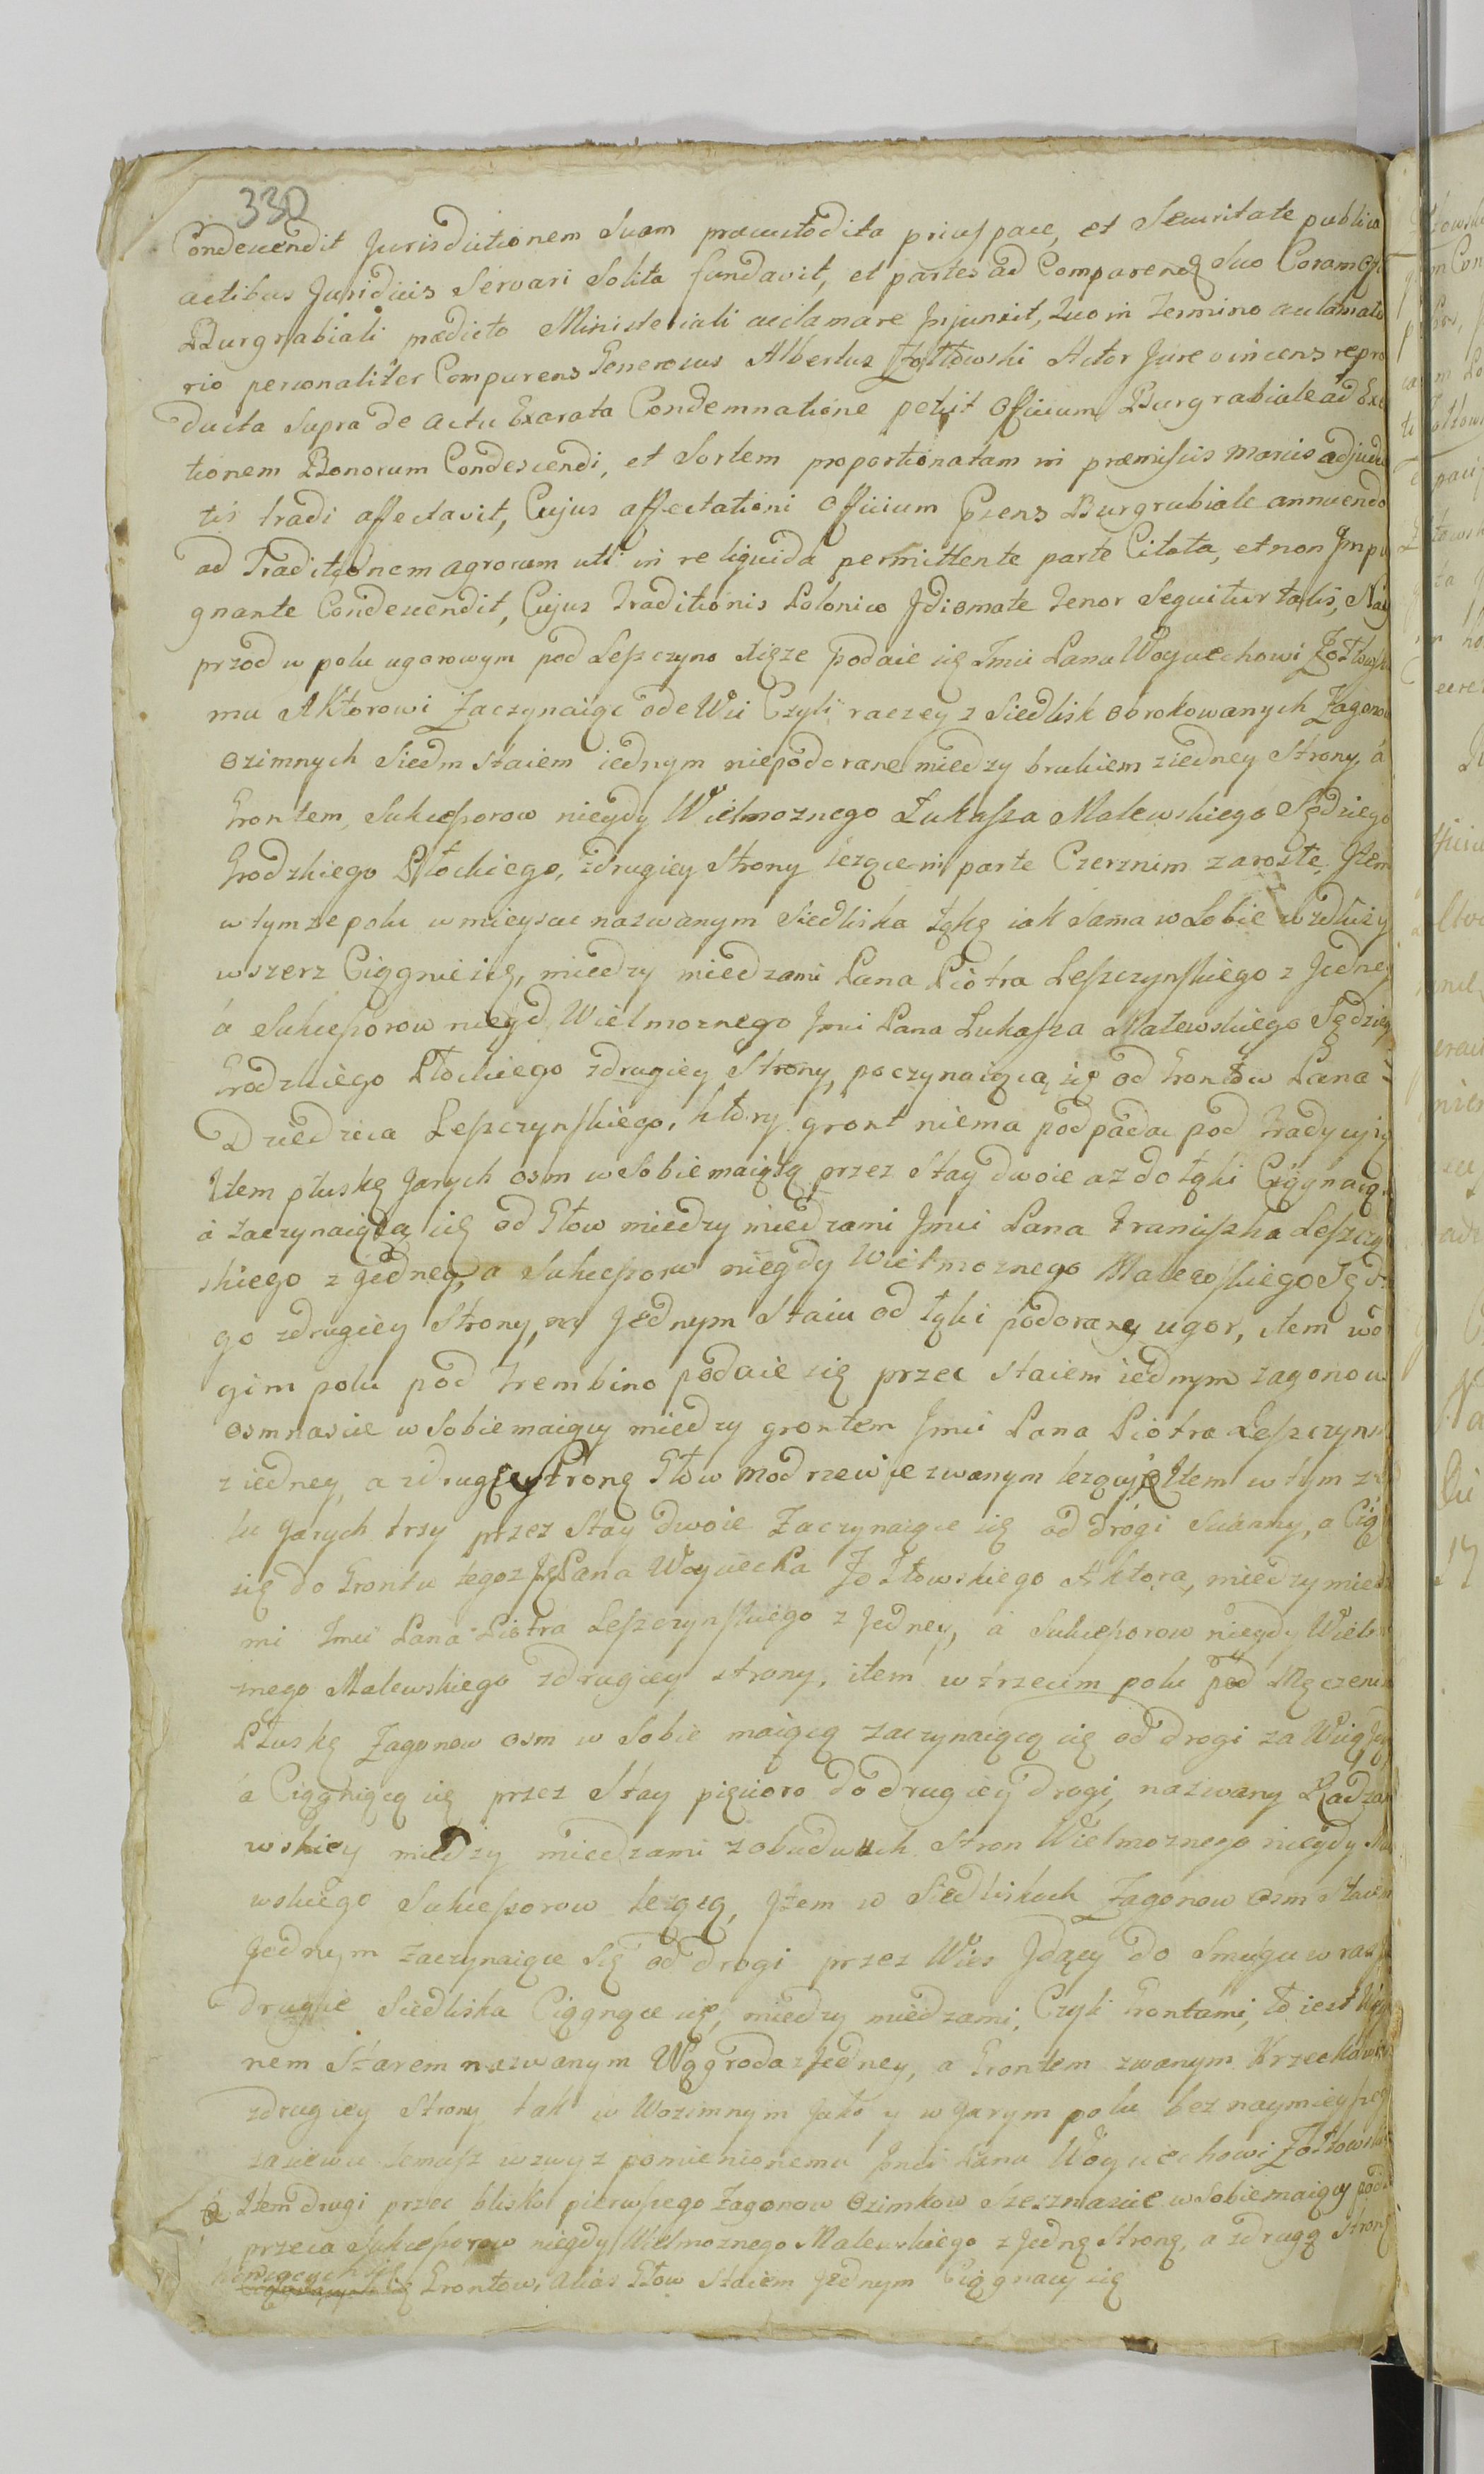 330
Condescendit Jurisdictionem Suam praecustodita prius pace, et Securitate publica
actibus Juridicis Servari Solita fundavit, et partes ad Comparend Suo Coram Off
Burgrabiali praedicto Ministeriali acclamare Jnjunxit, Quo in Termino acclamato
rio personaliter Comparens Generosus Albertus Zołtowski Actor Jure vincens repro
ducta Supra de actu Exarata Condemnatione petijt Officium Burgrabiale ad Exe
tionem Bonorum Condescendi, et Sortem proportionatam in praemissis Marcis adjudica
tis tradi affectavit, Cujus affectationi Officium Psens Burgrabiale annuendo
ad Traditionem agrorum uti in re liquida permittente parte Citata, et non Jmpu
gnante Condescendit, Cujus Traditionis Polonico Jdiomate Tenor Sequitur talis, Nay
przod w polu ugorowym pod Leszczyno Xięze podaie się Jmci Panu Woyciechowi Zołtowsk
mu Aktorowi Zaczynaiąc ode Wsi Czyli raczey z Siedlisk obrokowanych Zagonow
Ozimnych Siedm staiem iednym niepodorane miedzy brukiem ziedney Strony, á
Grontem, Sukcessorow niegdy Wielmoznego Łukasza Malewskiego Sędziego
Grodzkiego Płockiego, zdrugiey Strony lezące in parte Czerznim zarosłe, Jtem
w tymze polu w mieyscu nazwanym Siedliska łąkę iak Sama w Sobie wzdłuż y
w szerz Ciągnie się, miedzy miedzami Pana Piotra Leszczynskiego z Jedney
á Sukcessorow niegd Wielmoznego Jmci Pana Lukasza Malewskiego Sędzieg
Grodzkiego Płockiego zdrugiey Strony, poczynaiącą się od Grontow Pana
Dziedzica Leszczynskiego, ktory gront niema podpadac pod Tradycyią
Item płuskę Jarych osm w Sobie maiącą przez Stay dwoie az do łąki Ciągnącą
á Zaczynaiącą się od Głow miedzy miedzami Jmci Pana Franciszka Leszczy
skiego z jedney, a Sukcessorow niegdy Wielmoznego Malewskiego Sędz
go zdrugiey Strony, na Jednym Staiu od łąki podorany ugor, item w
gim polu pod Trembino podaie się przec staiem iednym zagonow
osmnascie w Sobie maiący miedzy grontem Jmci Pana Piotra Leszczyns
z iedney, a zdrugiey Strony Głow Modrzewie zwanym lezący, Item w tym
lu Jarych trzy przez Stay dwoie Zaczynaiące się od drogi Scianny, a Cią
się do Grontu tegoz JPana Woyciecha Zołtowskiego Aktora, miedzy mied
mi Jmci Pana Piotra Leszczynskiego z Jedney, á Sukcessorow niegdy Wielm
znego Malewskiego zdrugiey strony, item w trzecim polu pod Męczeni
Płuskę Zagonow osm w Sobie maiącą zaczynaiącą się od drogi za Wsią
á Ciągnącą się przez Stay pięcioro do drugiey drogi nazwany Radza
wskiey miedzy miedzami z obudwuch Stron Wielmoznego niegdy Ma
wskiego Sukcessorow lezącą, Jtem w Siedliskach Zagonow Osm Staiem
Jednym zaczynaiące Się od drogi przez Wies Jdący do Smugu w raz
drugie Siedliska Ciągnące się, miedzy miedzami, Czyli Grontami, to iest
nem Starem nazwanym Wągroda z Jedney, a Grontem zwanym Krzeck
zdrugiey Strony tak w Wozimnym Jako y w Jarym polu bez naymieyszeg
zasiewu Temusz wzwyz pomienionemu Jmci Panu Woyciechowi Zołtowski
á Item drugi przec blisko pierwszego Zagonow Ozimkow Szesznascie w Sobie maiący pod
przeca Sukcessorow niegdy Wielmoznego Malewskiego z Jedną Stroną, a zdrugą Stroną
Grontow, alias Głow Staiem Jednym Ciągnący się